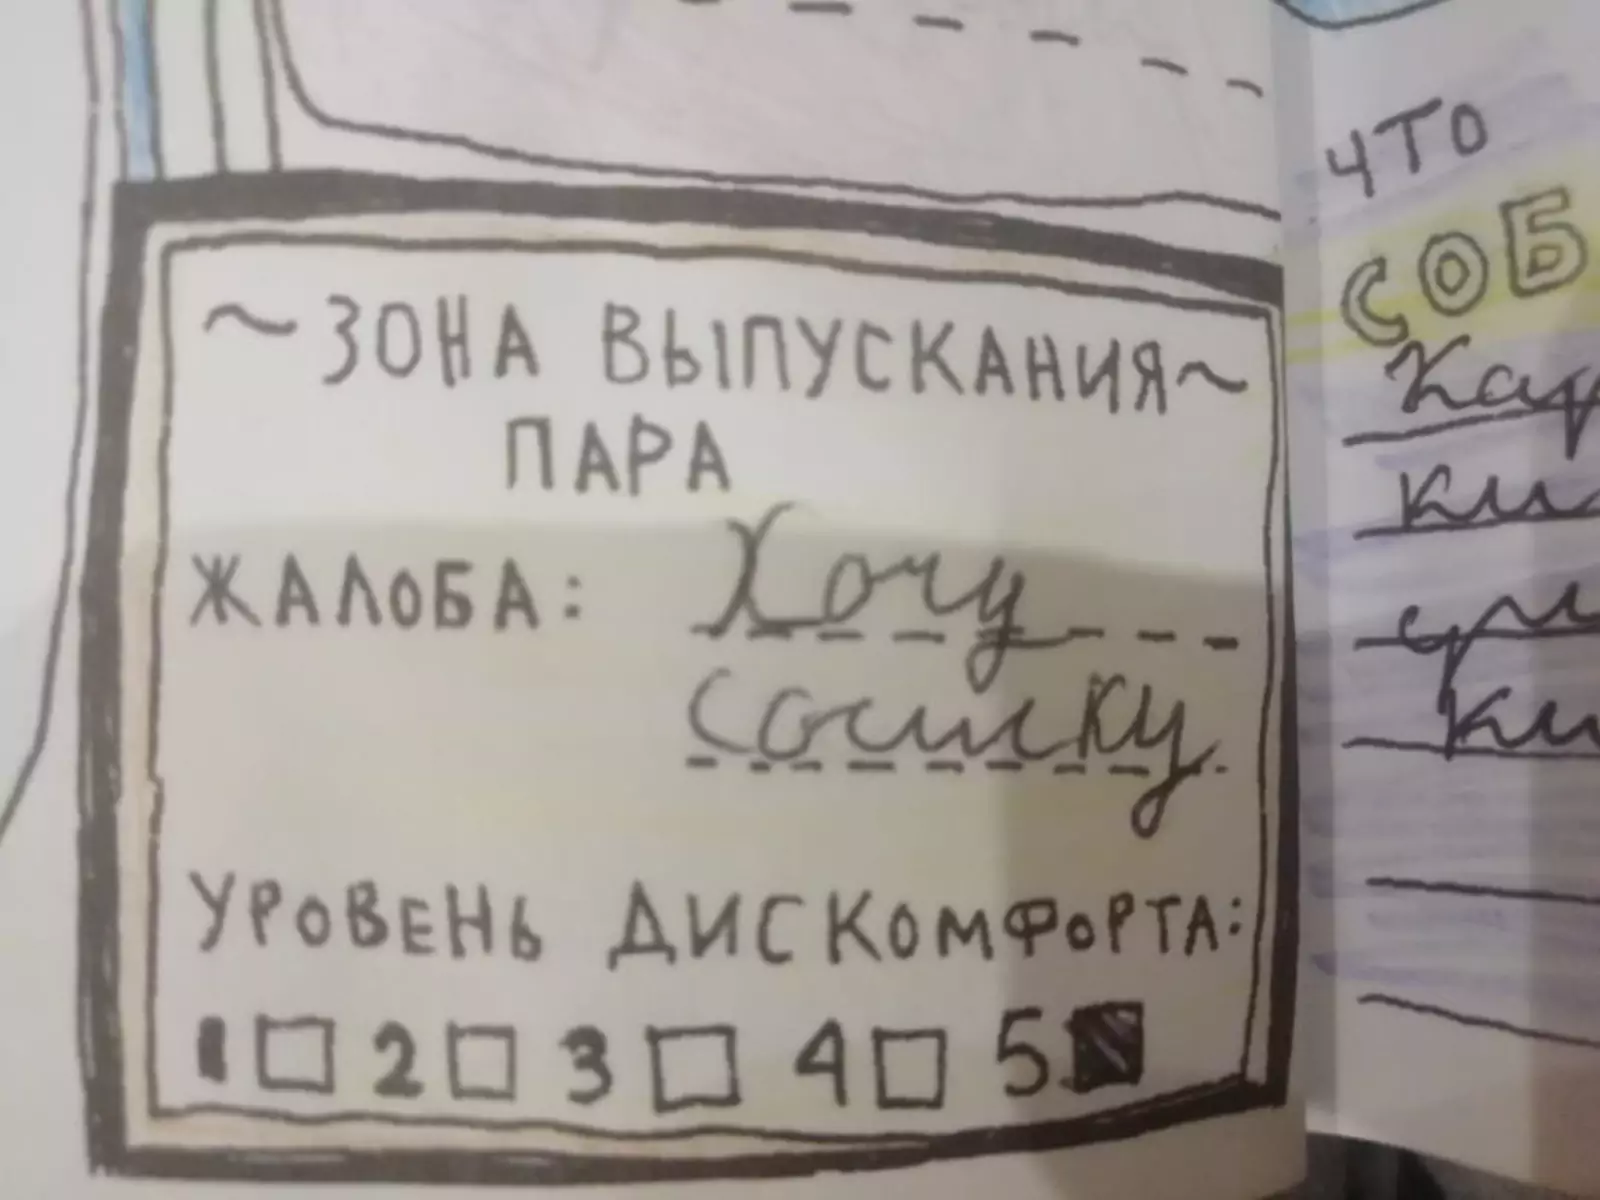 ~ЗОНА ВЫПУСКАНИЯ~
ПАРА
ЖАЛОБА: Хочу
сосиску
УРОВЕНЬ ДИСКОМФОРТА:
1 2 3 4 5
ЧТО
СОБ